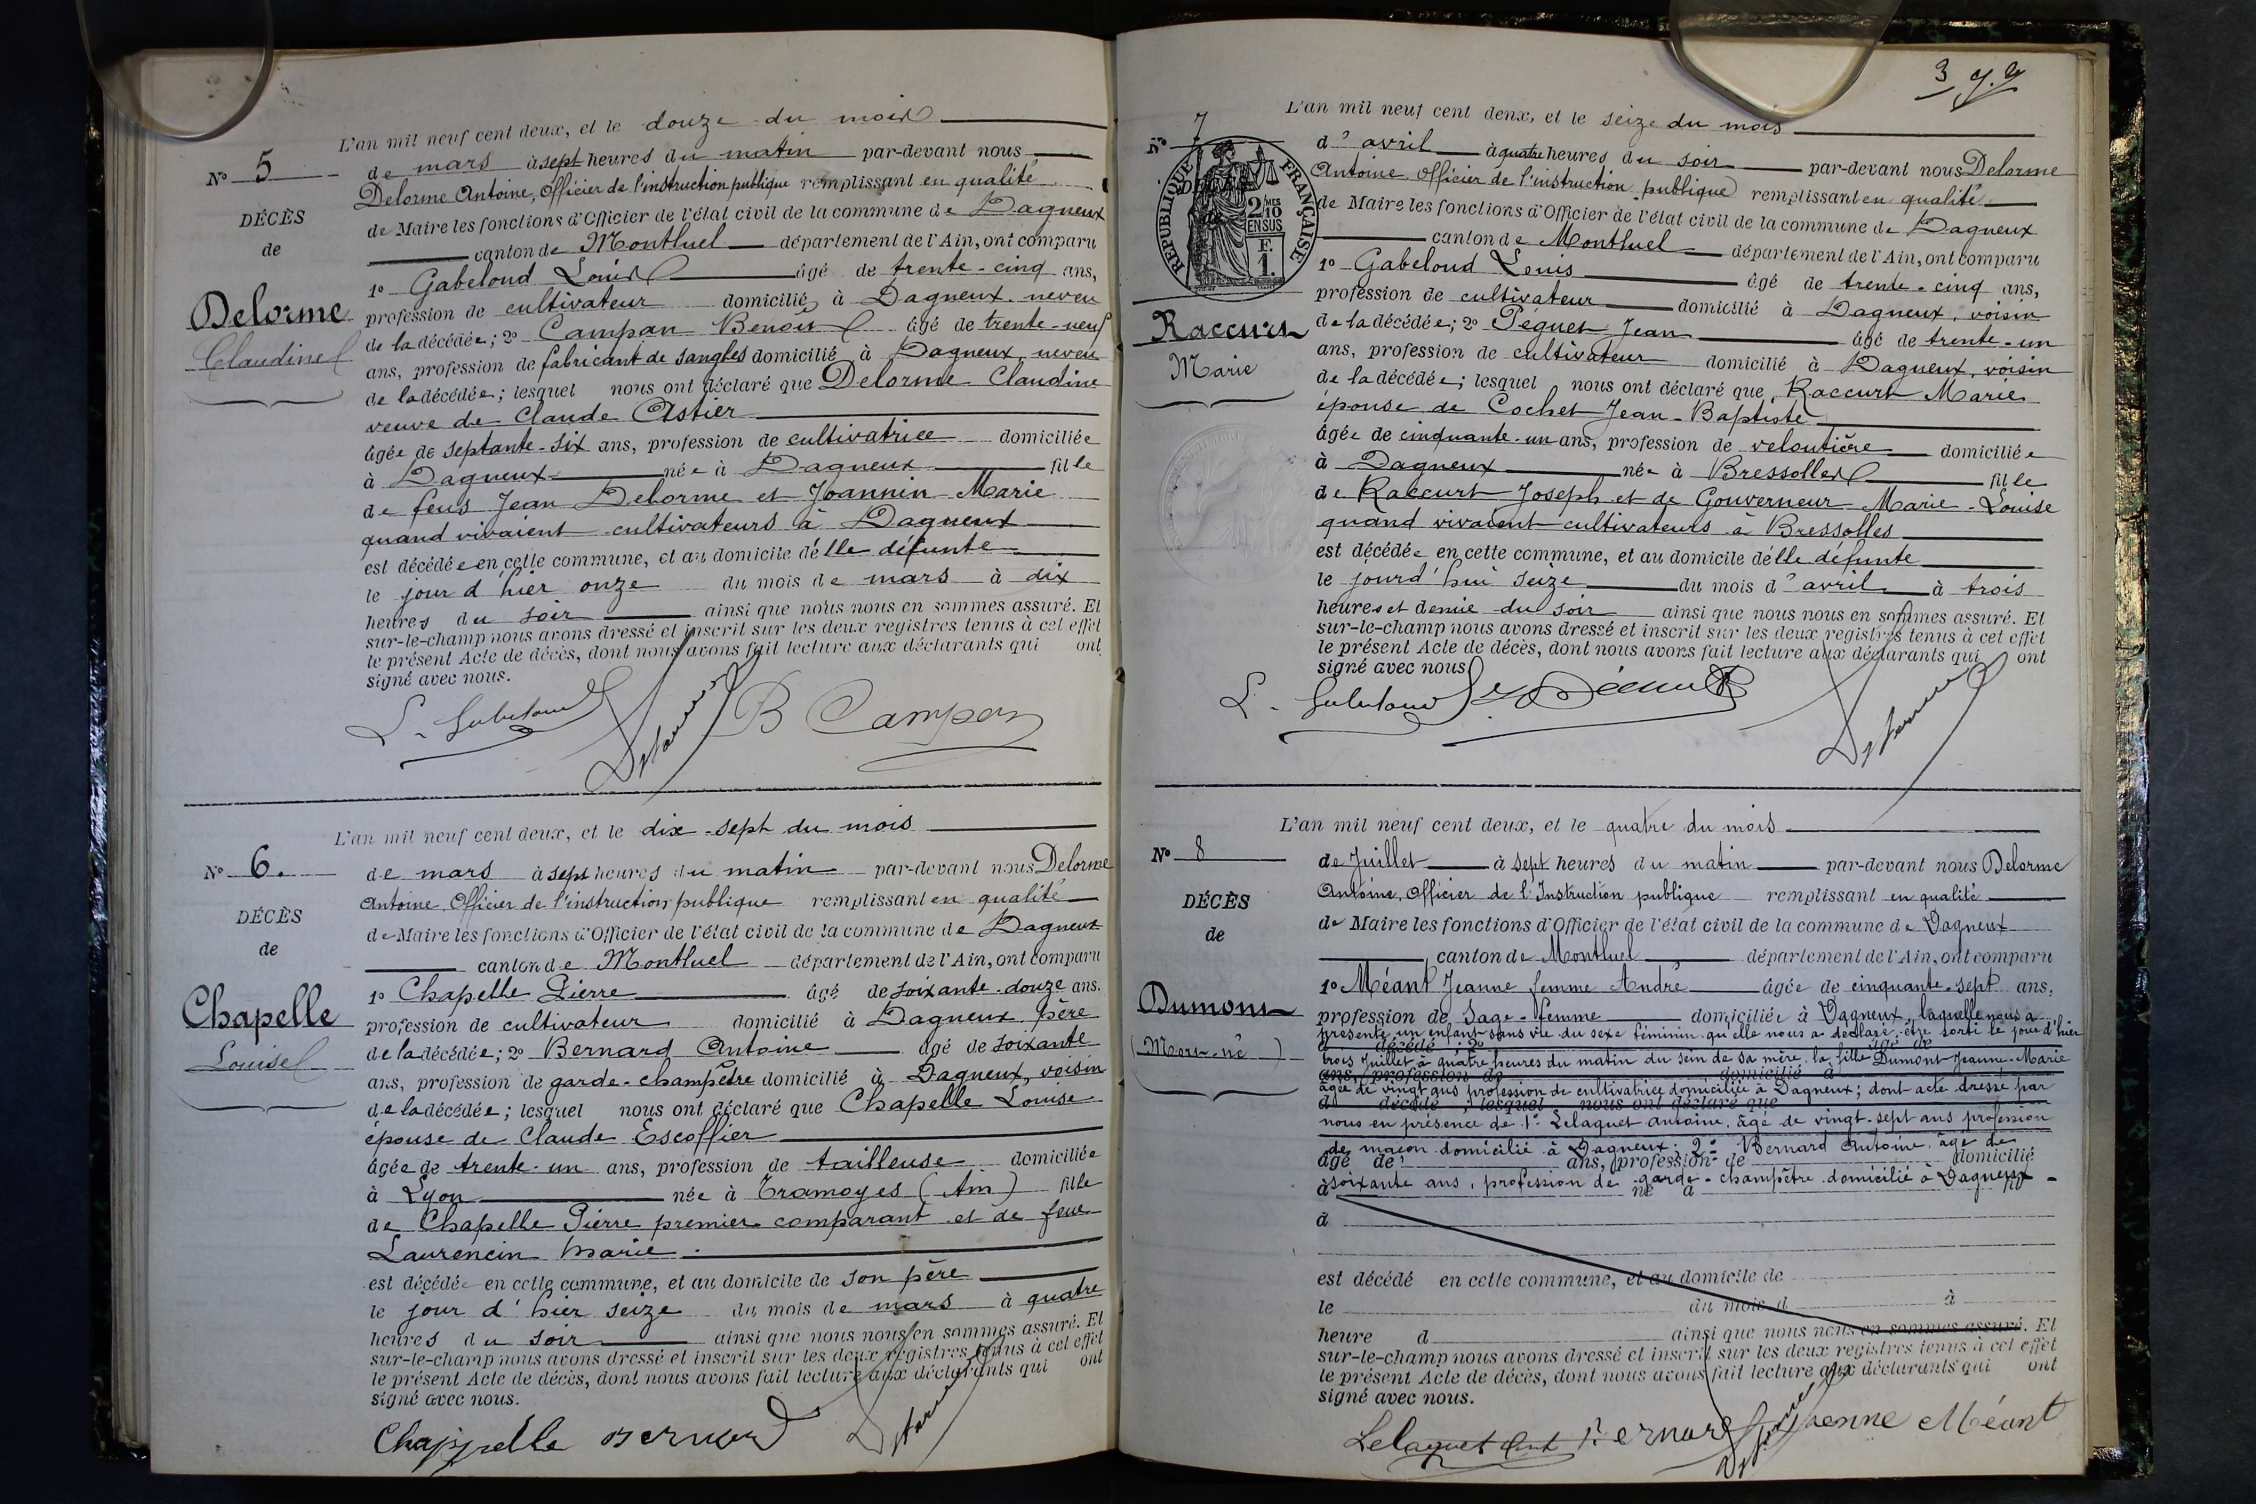 L'an mil neuf cent deux, et le douze du mois
N° 5
de mars à sept heures du matin par-devant nous
Delorme Antoine, Officier de l'instruction publique remplissant en qualité
DÉCÈS
de Maire les fonctions d'Officier de l'état civil de la commune de Dagneux
de
canton de Montluel département de l'Ain, ont comparu
1° Gabeloud Louis âgé de trente-cinq ans,
Delorme
profession de cultivateur domicilié à Dagneux neveu
Claudine
de la décédée; 2° Campan Benoit âgé de trente-neuf
ans, profession de fabricant de sangles domicilié à Dagneux, neveu
de la décédée; lesquel nous ont déclaré que Delorme Claudine
veuve de Claude Astier
âgée de septante-six ans, profession de cultivatrice domiciliée
à Dagneux née à Dagneux fille
de feus Jean Delorme et Joannin Marie
quand vivaient cultivateurs à Dagneux
est décédée en cette commune, et au domicile d'elle défunte
le jour d'hier onze du mois de mars à dix
heures du soir ainsi que nous nous en sommes assuré. Et
sur-le-champ nous avons dressé et inscrit sur les deux registres tenus à cet effet
le présent Acte de décès, dont nous avons fait lecture aux déclarants qui ont
signé avec nous.
L. Gabeloud Delorme B Campan
L'an mil neuf cent deux, et le dix-sept du mois
N° 6.
de mars à sept heures du matin par-devant nous Delorme
Antoine, Officier de l'instruction publique remplissant en qualité
DÉCÈS
de Maire les fonctions d'Officier de l'état civil de la commune de Dagneux
de
canton de Montluel département de l'Ain, ont comparu
1° Chapelle Pierre âgé de soixante-douze ans.
Chapelle
profession de cultivateur domicilié à Dagneux père
Louise
de la décédée; 2° Bernard Antoine âgé de soixante
ans, profession de garde-champêtre domicilié à Dagneux, voisin
de la décédée; lesquel nous ont déclaré que Chapelle Louise
épouse de Claude Escoffier
âgée de trente-un ans, profession de tailleuse domiciliée
à Lyon née à Tramoyes (Ain) fille
de Chapelle Pierre premier comparant et de feue
Laurencin Marie.
est décédée en cette commune, et au domicile de son père
le jour d'hier seize du mois de mars à quatre
heures du soir ainsi que nous nous en sommes assuré. Et
sur-le-champ nous avons dressé et inscrit sur les deux registres tenus à cet effet
le présent Acte de décès, dont nous avons fait lecture aux déclarants qui ont
signé avec nous.
Chappelle Bernard Delorme
3
L'an mil neuf cent deux, et le seize du mois
N° 7
d'avril à quatre heures du soir par-devant nous Delorme
Antoine Officier de l'instruction publique remplissant en qualité
RÉPUBLIQUE FRANÇAISE
DÉCÈS
2/10 MES EN SUS
F. 1.
de Maire les fonctions d'Officier de l'état civil de la commune de Dagneux
canton de Montluel département de l'Ain, ont comparu
1° Gabeloud Louis âgé de trente-cinq ans,
profession de cultivateur domicilié à Dagneux, voisin
Raccurt
de la décédée; 2° Péguet Jean âgé de trente-un
Marie
ans, profession de cultivateur domicilié à Dagneux, voisin
de la décédée; lesquel nous ont déclaré que Raccurt Marie
épouse de Cochet Jean-Baptiste
âgée de cinquante-un ans, profession de veloutière domiciliée
à Dagneux née à Bressolles fille
de Raccurt Joseph et de Gouverneur Marie-Louise
quand vivaient cultivateurs à Bressolles
est décédée en cette commune, et au domicile d'elle défunte
le jourd'hui seize du mois d'avril à trois
heures et demie du soir ainsi que nous nous en sommes assuré. Et
sur-le-champ nous avons dressé et inscrit sur les deux registres tenus à cet effet
le présent Acte de décès, dont nous avons fait lecture aux déclarants qui ont
signé avec nous
L. Gabeloud Péguet Delorme
L'an mil neuf cent deux, et le quatre du mois
N° 8
de Juillet à sept heures du matin par-devant nous Delorme
Antoine, Officier de l'Instruction publique remplissant en qualité
DÉCÈS
de Maire les fonctions d'Officier de l'état civil de la commune de Dagneux
de
canton de Montluel département de l'Ain, ont comparu
1° Méant Jeanne femme André âgée de cinquante-sept ans,
Dumont
profession de Sage-femme domiciliée à Dagneux, laquelle nous a
présenté un enfant sans vie du sexe féminin qu'elle nous a déclaré être sorti le jour d'hier
(Mort-né)
d décédé ; 2° âgé de
trois Juillet à quatre heures du matin du sein de sa mère, la fille Dumont Jeanne-Marie
ans, profession de domicilié à
âgée de vingt ans profession de cultivatrice domiciliée à Dagneux; dont acte dressé par
d décédé ; lesquel nous ont déclaré que
nous en présence de 1° Lelaquet Antoine, âgé de vingt-sept ans profession
de maçon domicilié à Dagneux; 2° Bernard Antoine âgé de
âgé de ans, profession de domicilié
soixante ans, profession de garde-champêtre domicilié à Dagneux
à né à
à
est décédé en cette commune, et au domicile de
le du mois d à
heure d ainsi que nous nous en sommes assuré. Et
sur-le-champ nous avons dressé et inscrit sur les deux registres tenus à cet effet
le présent Acte de décès, dont nous avons fait lecture aux déclarants qui ont
signé avec nous.
Lelaquet Ant Bernard Delorme Jenne Méant